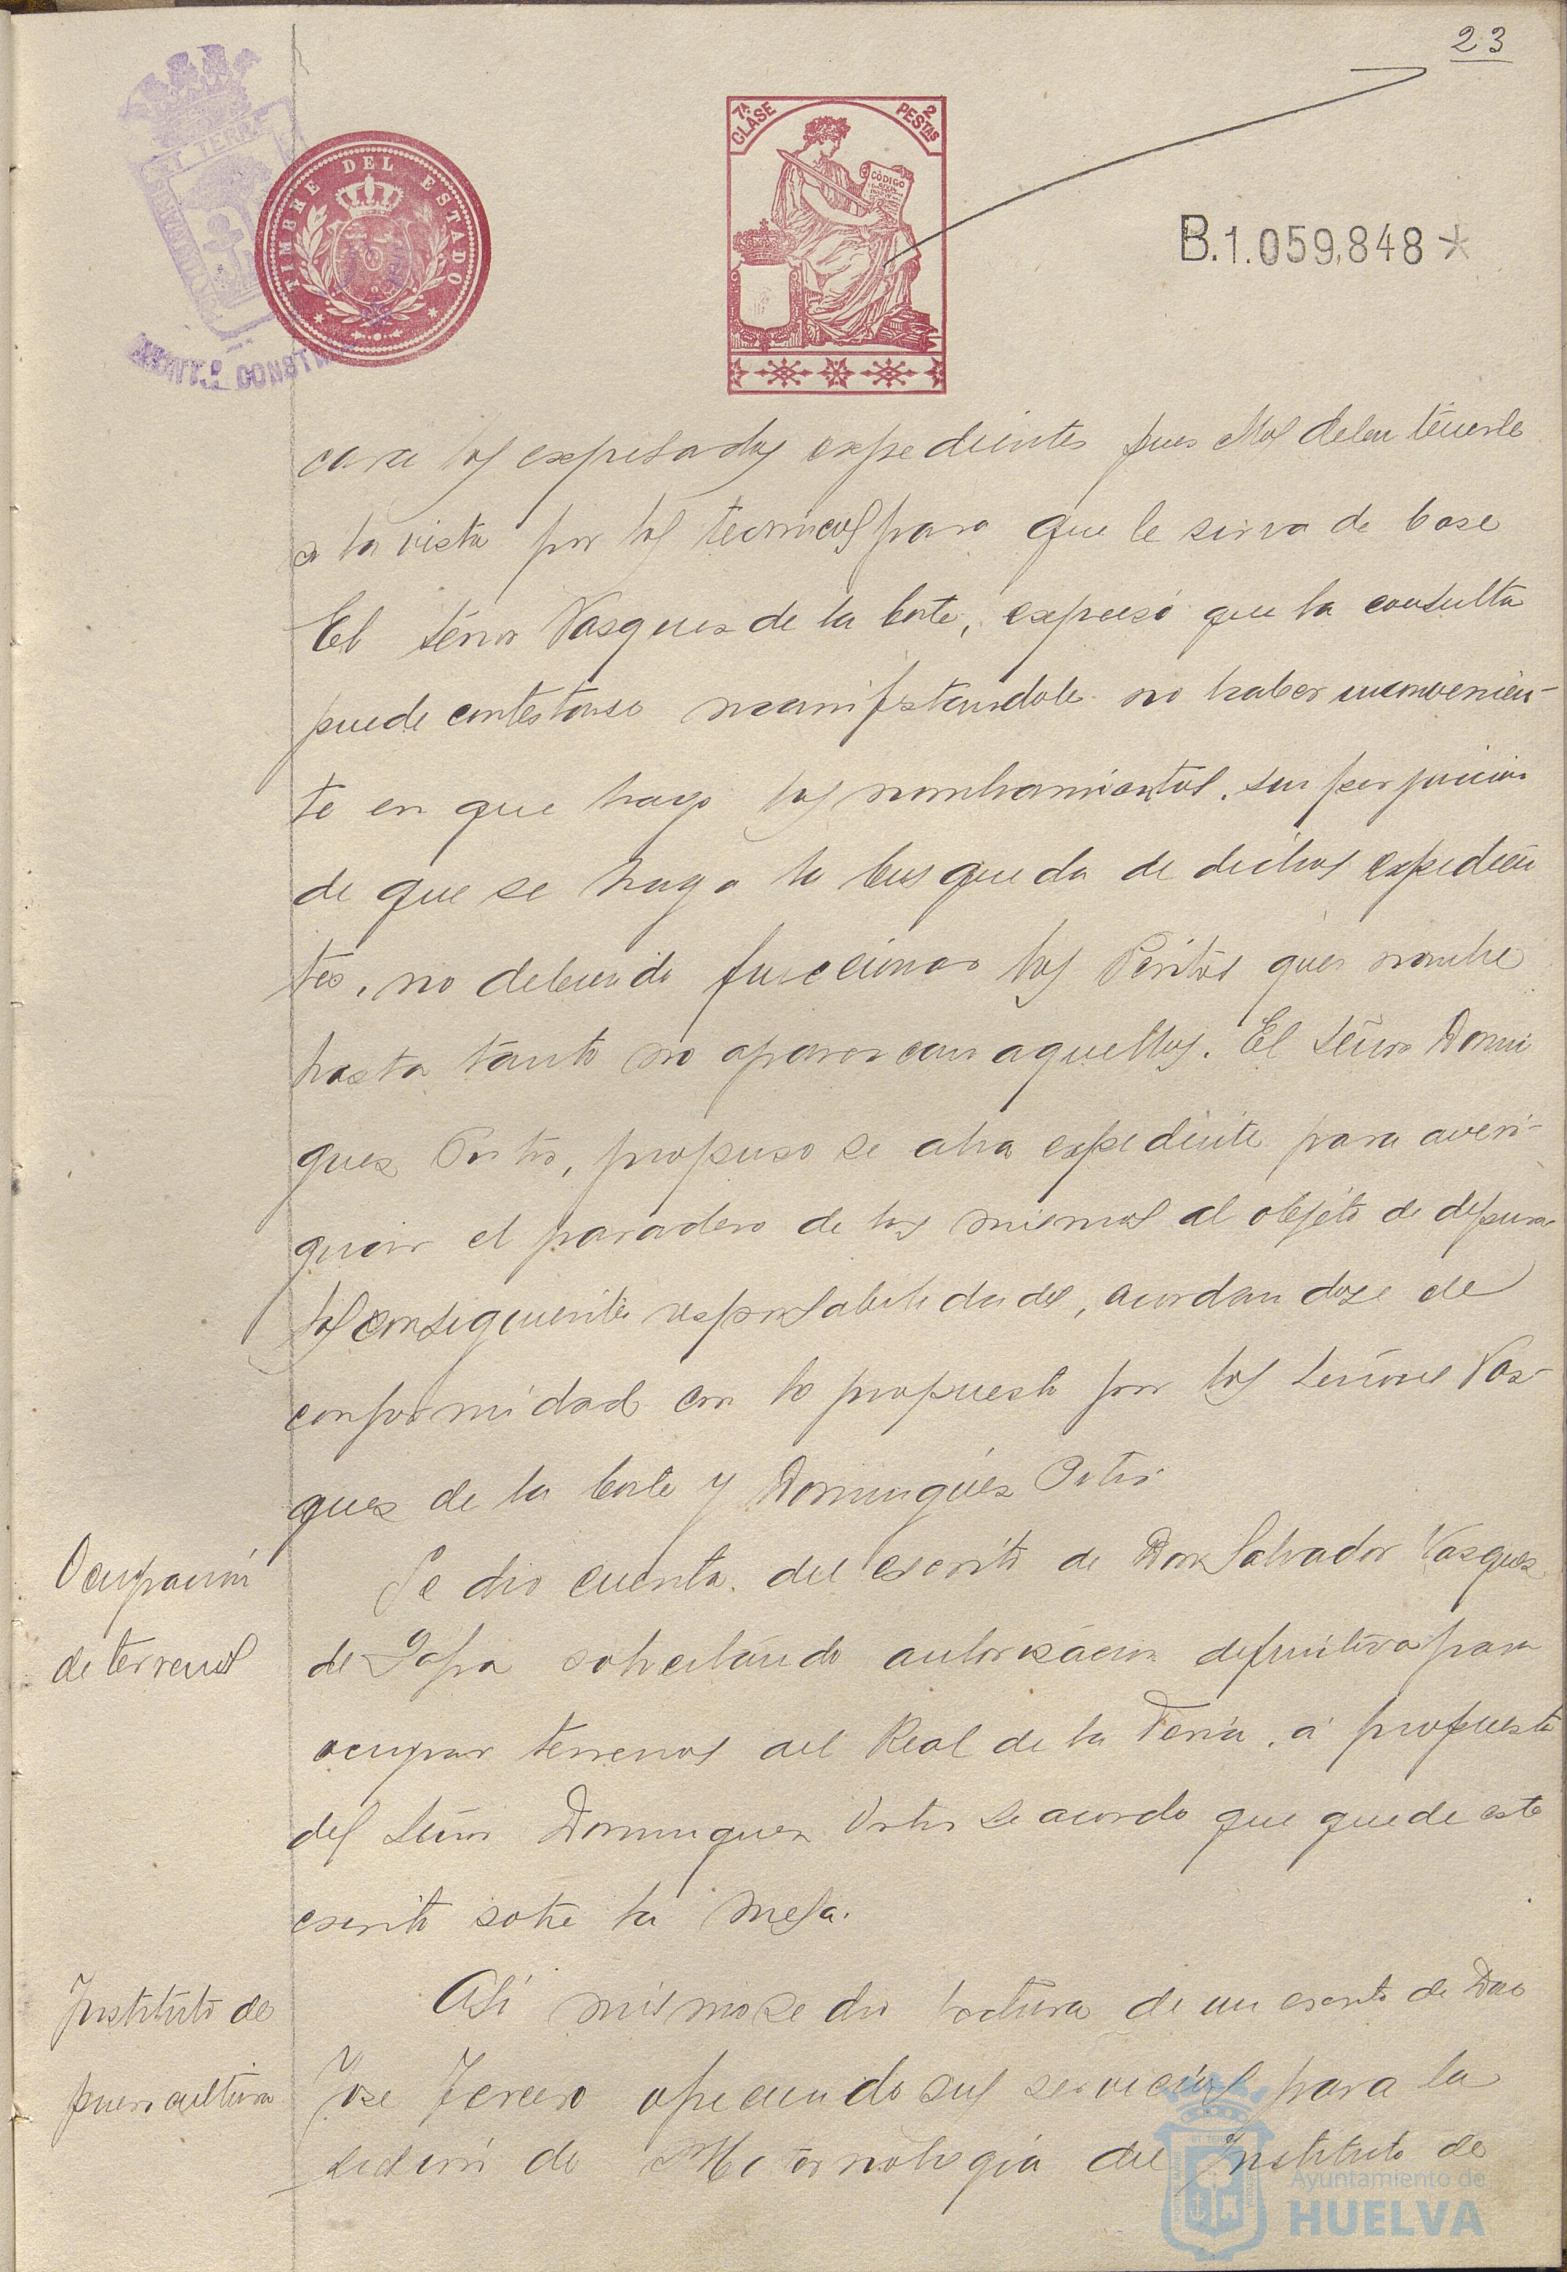 23
7ª CLASE
2 PESTAS
CÓDIGO
TIMBRE DEL ESTADO
B.1.059,848*
CONST
care los expresados expedientes pues ellos deben tenerle
a la vista por los tecnicos para que le sirva de base
El señor Vasques de la Corte, expresó que la consulta
puede contestarse manifestandole no haber inconvenien-
te en que haga los nombramientos, sin perjuicio
de que se haga la busqueda de dichos expedien
tes, no debiendo funcionar los Peritos que nombre
hasta tanto no aparezcan aquellos. El señor Domin
gues Ortis, propuso se abra expediente para averi-
guar el paradero de los mismos al objeto de depurar
las consiguientes responsabilidades, acordandose de
conformidad con lo propuesto por los señores Vas-
ques de la Corte y Domingues Ortis
Ocupación
de terrenos
Se dio cuenta del escrito de Don Salvador Vasques
de Zafra solicitando autorisacion definitiva para
ocupar terrenos del Real de la Feria, á propuesta
del señor Domingues Ortis se acordo que quede este
escrito sobre la mesa.
Instituto de
puericultura
Asi mismo se dio lectura de un escrito de Don
Jose Tercero ofreciendo sus servicios para la
sesion de Maternologia del Instituto de
Ayuntamiento de
HUELVA